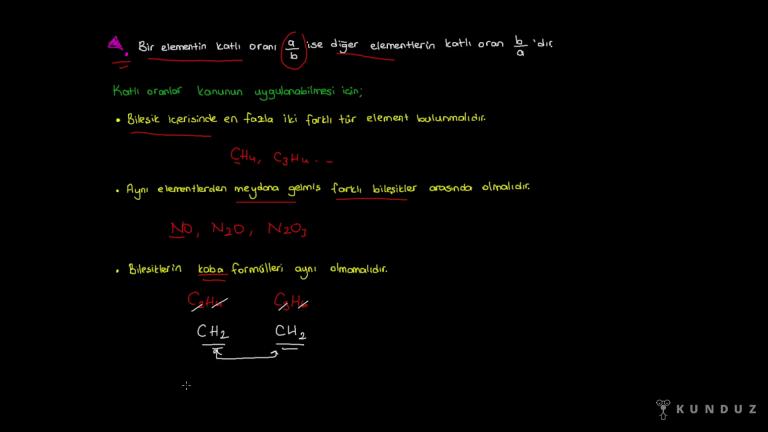 Bir elementin katlı oranı a/b ise diğer elementlerin katlı oran b/a 'dır
Katlı oranlar kanunun uygulanabilmesi için;
• Bileşik içerisinde en fazla iki farklı tür element bulunmalıdır.
CH4, C3H4 ...
• Aynı elementlerden meydana gelmiş farklı bileşikler arasında olmalıdır.
NO, N2O, N2O3
• Bileşiklerin kaba formülleri aynı olmamalıdır.
CH2 CH2
KUNDUZ